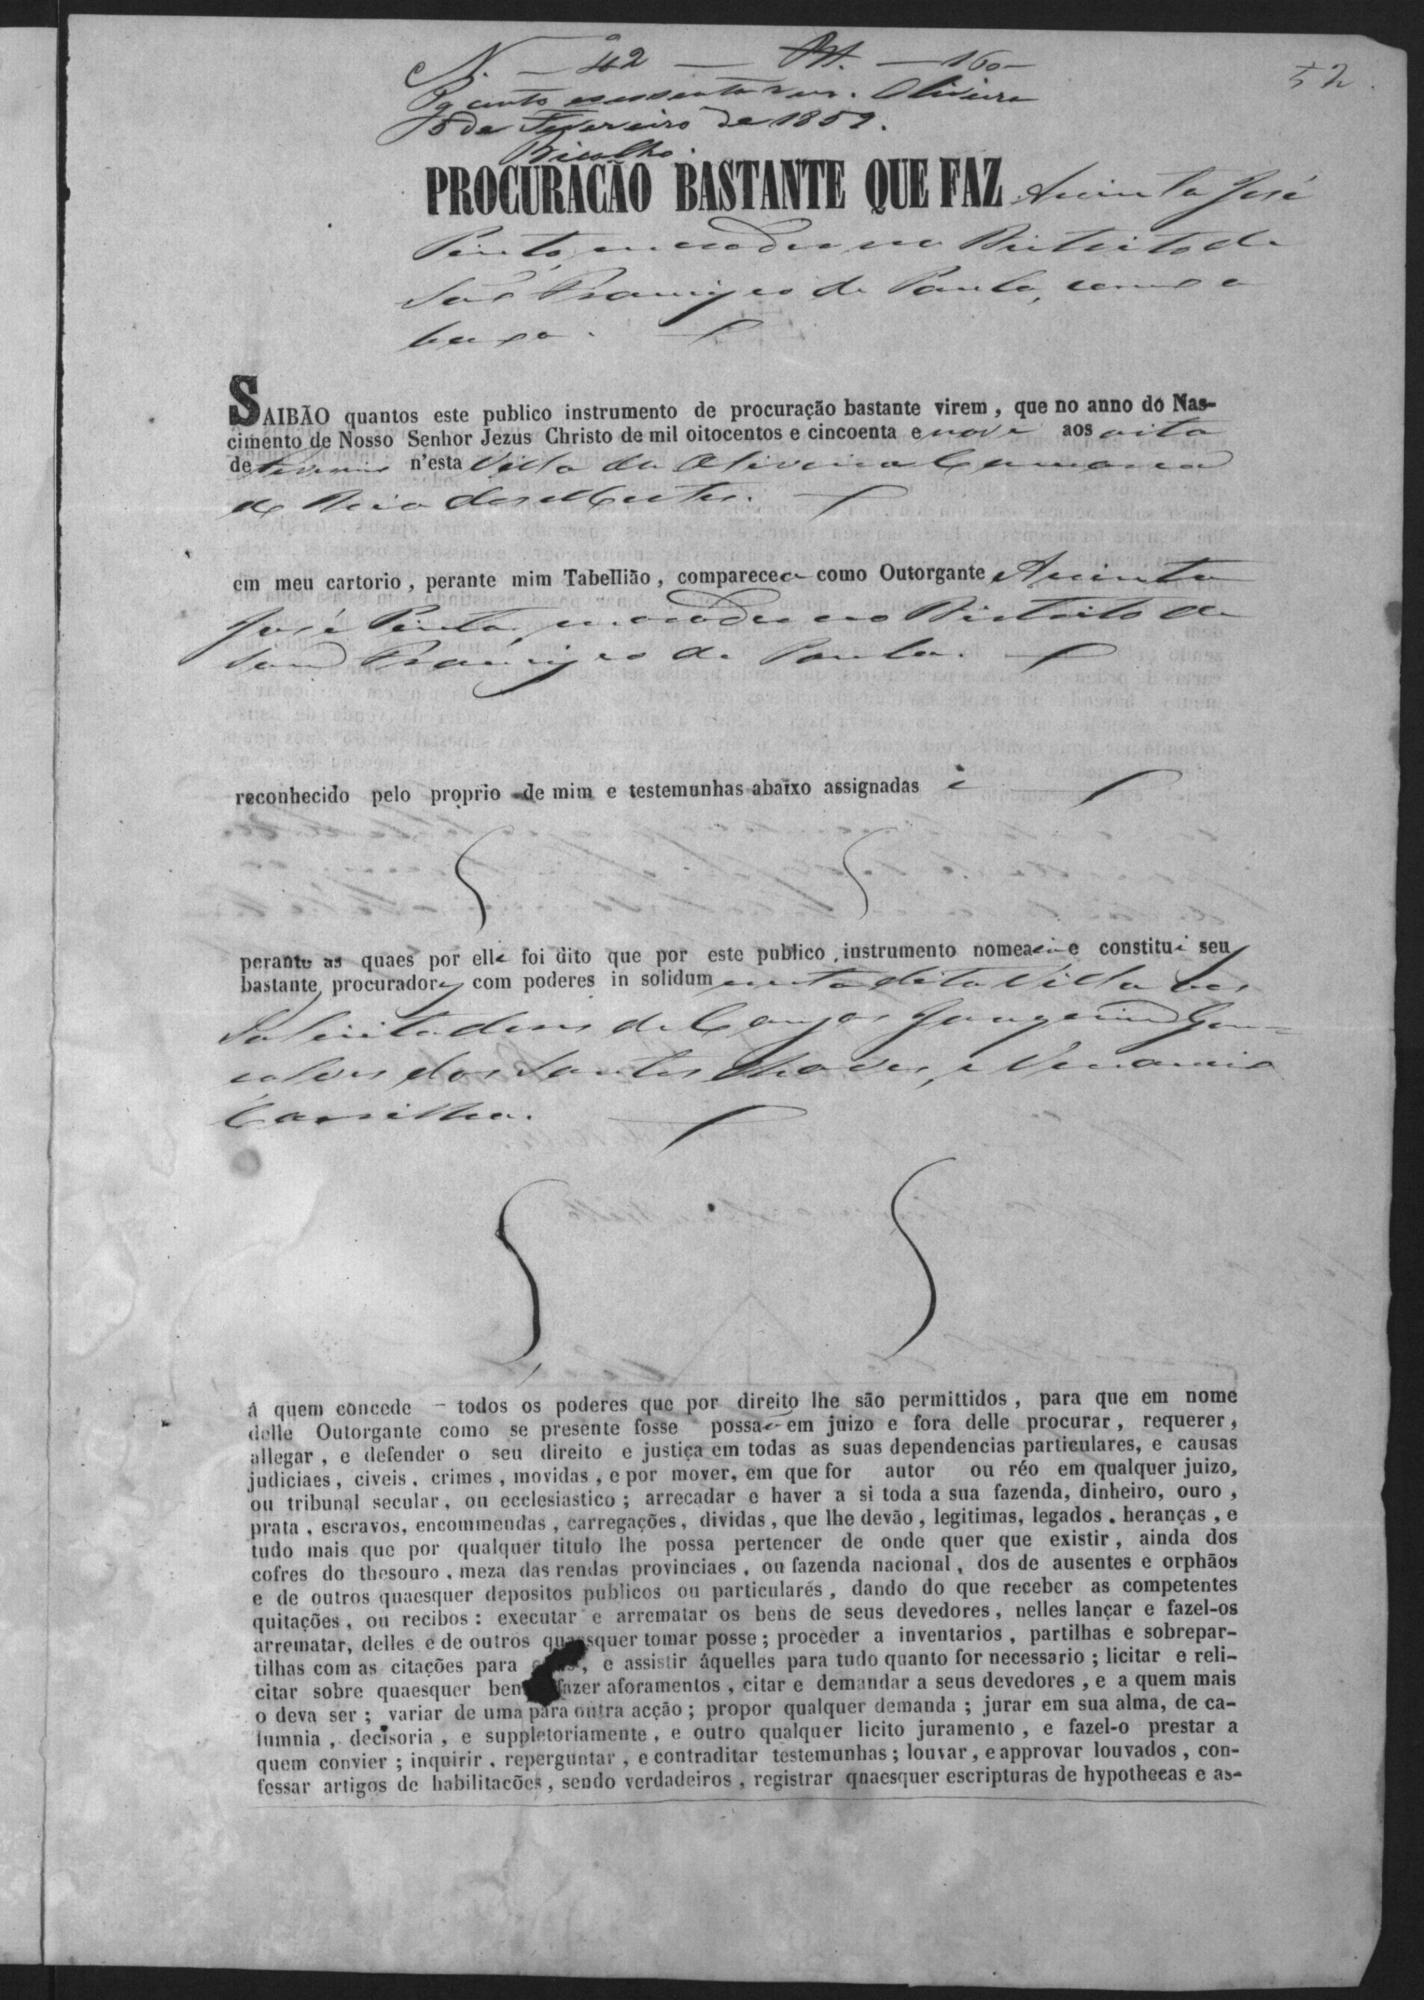 N. — 42 — — 160 —
Pg cento e sessenta reis. Oliveira
8 de Fevereiro de 1859.
Bicalho.
52
PROCURAÇÃO BASTANTE QUE FAZ José
Pinto, morador no Districto de
São Francisco de Paula, como a
baixo.
SAIBÃO quantos este publico instrumento de procuração bastante virem, que no anno do Nas-
cimento de Nosso Senhor Jezus Christo de mil oitocentos e cincoenta e nove aos oito
de Fevereiro n'esta Villa da Oliveira Comarca
do Rio das Mortes.
em meu cartorio, perante mim Tabellião, compareceo como Outorgante
José Pinto, morador no Districto de
São Francisco de Paula.
reconhecido pelo proprio de mim e testemunhas abaixo assignadas e
perante as quaes por elle foi dito que por este publico instrumento nomea e constitui seus
bastantes procuradores com poderes in solidum nesta dita Villa aos
Solicitadores de Cauzas Joaquim Gon-
calves dos Santos Chaves, e Venancio
Carrilho.
á quem concede — todos os poderes que por direito lhe são permittidos, para que em nome
delle Outorgante como se presente fosse possa em juizo e fora delle procurar, requerer,
allegar, e defender o seu direito e justiça em todas as suas dependencias particulares, e causas
judiciaes, civeis, crimes, movidas, e por mover, em que for autor ou réo em qualquer juizo,
ou tribunal secular, ou ecclesiastico; arrecadar e haver a si toda a sua fazenda, dinheiro, ouro,
prata, escravos, encommendas, carregações, dividas, que lhe devão, legitimas, legados, heranças, e
tudo mais que por qualquer titulo lhe possa pertencer de onde quer que existir, ainda dos
cofres do thesouro, meza das rendas provinciaes, ou fazenda nacional, dos de ausentes e orphãos
e de outros quaesquer depositos publicos ou particulares, dando do que receber as competentes
quitações, ou recibos: executar e arrematar os bens de seus devedores, nelles lançar e fazel-os
arrematar, delles e de outros quaesquer tomar posse; proceder a inventarios, partilhas e sobrepar-
tilhas com as citações para , e assistir áquelles para tudo quanto for necessario; licitar e reli-
citar sobre quaesquer ben fazer aforamentos, citar e demandar a seus devedores, e a quem mais
o deva ser; variar de uma para outra acção; propor qualquer demanda; jurar em sua alma, de ca-
lumnia, decisoria, e suppletoriamente, e outro qualquer licito juramento, e fazel-o prestar a
quem convier; inquirir, reperguntar, e contraditar testemunhas; louvar, e approvar louvados, con-
fessar artigos de habilitações, sendo verdadeiros, registrar quaesquer escripturas de hypothecas e as-